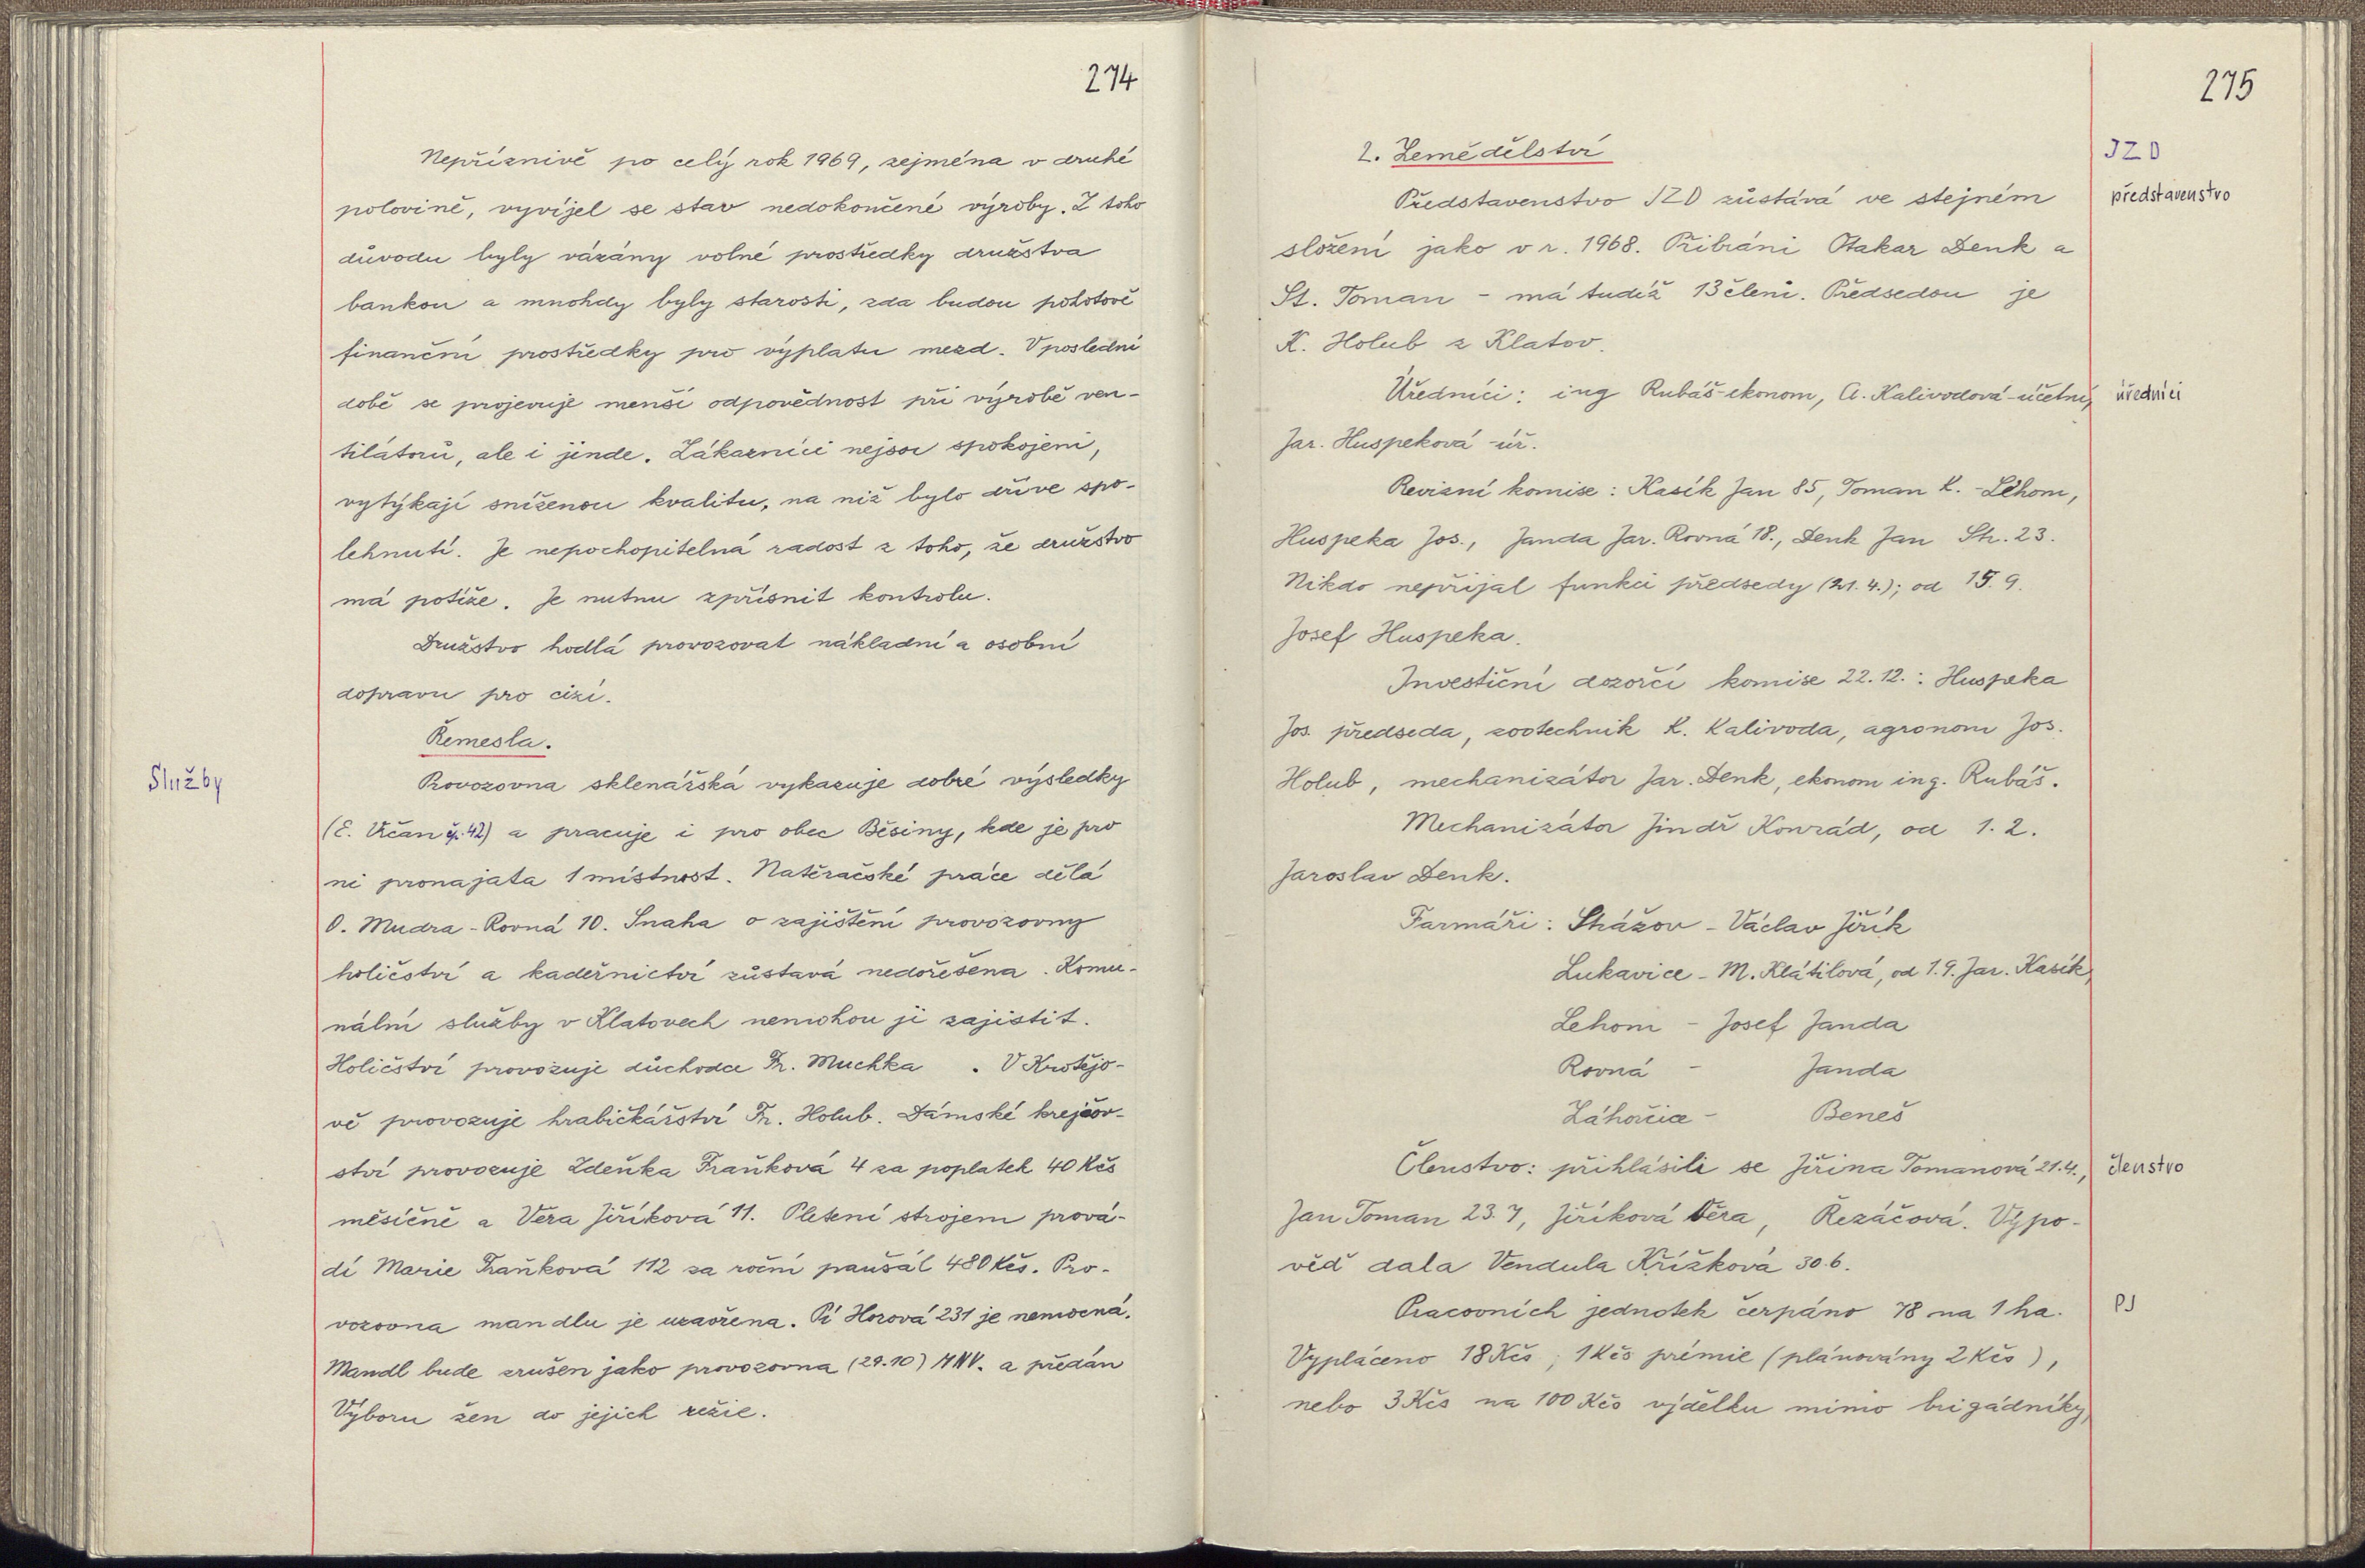 274
Nepříznivě po celý rok 1969, zejména v druhé
polovině, vyvíjel se stav nedokončené výroby. Z toho
důvodu byly vázány volné prostředky družstva
bankou a mnohdy byly starosti, zda budou pohotově
finanční prostředky pro výplatu mezd. V poslední
době se projevuje menší odpovědnost při výrobě ven-
tilátorů, ale i jinde. Zákazníci nejsou spokojeni,
vytýkají sníženou kvalitu, na niž bylo dříve spo-
lehnutí. Je nepochopitelná radost z toho, že družstvo
má potíže. Je nutnu zpřísnit kontrolu.
Družstvo hodlá provozovat nákladní a osobní
dopravu pro cizí.
Řemesla.
Služby
Provozovna sklenářská vykazuje dobré výsledky
(E. Vlčan čp. 42) a pracuje i pro obec Běšiny, kde je pro
ni pronajata 1 místnost. Natěračské práce dělá
O. Mudra - Rovná 10. Snaha o zajištění provozovny
holičství a kadeřnictví zůstavá nedořešena. Komu-
nální služby v Klatovech nemohou ji zajistit.
Holičství provozuje důchodce Fr. Muchka . V Krotějo-
vě provozuje hrabičkářství Fr. Holub. Dámské krejčov-
ství provozuje Zdeňka Fraňková 4 za poplatek 40 Kčs
měsíčně a Věra Jiříková 11. Pletení strojem prová-
dí Marie Fraňková 112 za roční paušál 480 Kčs. Pro-
vozovna mandlu je uzavřena. Pí Horová 231 je nemocná.
Mandl bude zrušen jako provozovna (29.10) MNV. a předán
Výboru žen do jejich režie.
275
2. Zemědělství
JZD
Představenstvo JZD zůstává ve stejném
představenstvo
složení jako v r. 1968. Přibráni Otakar Denk a
St. Toman - má tudíž 13 členů. Předsedou je
K. Holub z Klatov.
Úředníci: ing Rubáš - ekonom, A. Kalivodová - účetní,
úředníci
Jar. Huspeková - úř.
Revizní komise: Kasík Jan 85, Toman K. - Lehom,
Huspeka Jos., Janda Jar. Rovná 18., Denk Jan Str. 23.
Nikdo nepřijal funkci předsedy (21. 4.); od 15. 9.
Josef Huspeka.
Investiční dozorčí komise 22. 12.: Huspeka
Jos. předseda, zootechnik K. Kalivoda, agronom Jos.
Holub, mechanizátor Jar. Denk, ekonom ing. Rubáš.
Mechanizátor Jindř Konrád, od 1. 2.
Jaroslav Denk.
Farmáři: Strážov - Václav Jiřík
Lukavice - M. Klátilová, od 1. 9. Jar. Kasík,
Lehom - Josef Janda
Rovná - Janda
Záhorčice - Beneš
Členstvo: přihlásili se Jiřina Tomanová 21.4.,
členstvo
Jan Toman 23. 7, Jiříková Věra, Řezáčová. Výpo-
věď dala Vendula Křížková 30.6.
Pracovních jednotek čerpáno 78 na 1 ha.
PJ
Vypláceno 18 Kčs; 1 Kčs prémie (plánovány 2 Kčs),
nebo 3 Kčs na 100 Kčs výdělku mimo brigádníky,